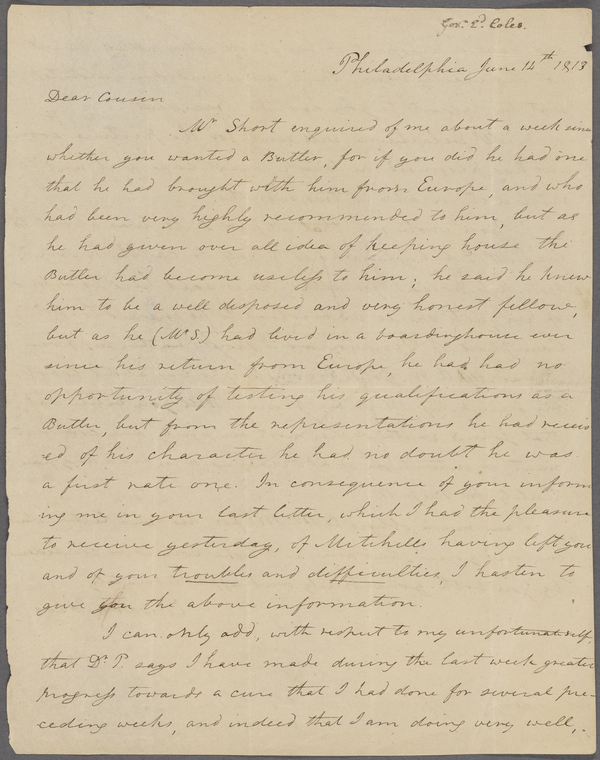 Gov. Ed. Coles.
Philadelphia June 14th 1813
Dear Cousin
Mr Short enquired of me about a week since
whether you wanted a Butler, for if you did he had one
that he had brought with him from Europe, and who
had been very highly recommended to him, but as
he had given over all idea of keeping house the
Butler had become useless to him; he said he knew
him to be a well disposed and very honest fellow,
but as he (Mr S.) had lived in a boardinghouse ever
since his return from Europe, he had had no
opportunity of testing his qualifications as a
Butler, but from the representations he had receiv
ed of his character he had no doubt he was
a first rate one. In consequence of your inform
ing me in your last letter, which I had the pleasure
to receive yesterday, of Mitchells having left you
and of your troubles and difficulties, I hasten to
give you the above information.
I can only add, with respect to my unfortunate self,
that Dr. P. says I have made during the last week greater
progress towards a cure that I had done for several pre-
ceding weeks, and indeed that I am doing very well,